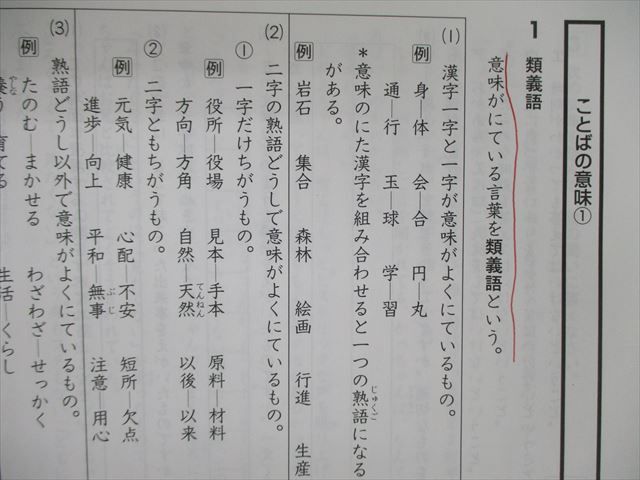 ことばの意味①
1 類義語
意味がにている言葉を類義語という。
(1) 漢字一字と一字が意味がよくにているもの。
例 身―体 会―合 円―丸
通―行 玉―球 学―習
*意味のにた漢字を組み合わせると一つの熟語になる
じゅくご
がある。
例 岩石 集合 森林 絵画 行進 生産
(2) 二字の熟語どうしで意味がよくにているもの。
① 一字だけちがうもの。
例 役所―役場 見本―手本 原料―材料
方向―方角 自然―天然 以後―以来
てんねん
② 二字ともちがうもの。
例 元気―健康 心配―不安 短所―欠点
進歩―向上 平和―無事 注意―用心
ぶじ
(3) 熟語どうし以外で意味がよくにているもの。
例 たのむ―まかせる わざわざ―せっかく
やしな
養う―育てる 生活―くらし